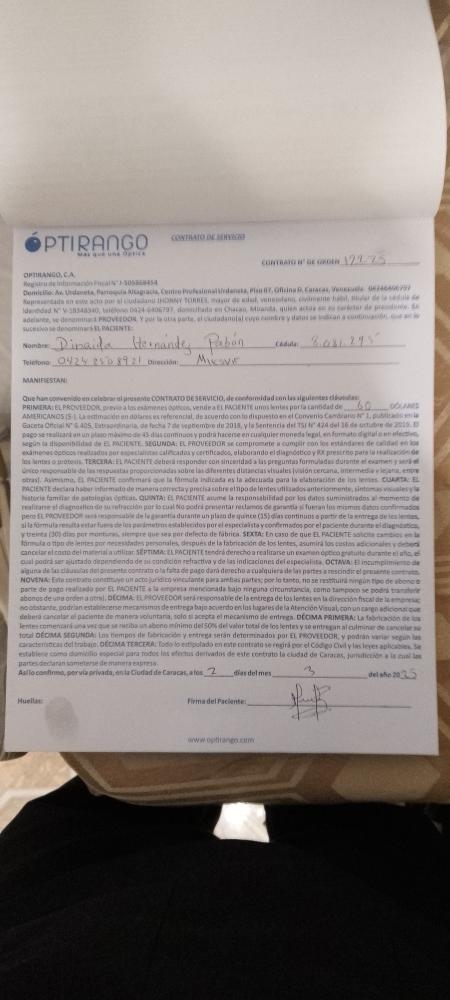 ÓPTIRANGO
Más que una Óptica
CONTRATO DE SERVICIO
CONTRATO N° DE ORDEN 122-25
OPTIRANGO, C.A.
Registro de Información Fiscal N° J-505868454
Domicilio: Av. Urdaneta, Parroquia Altagracia, Centro Profesional Urdaneta, Piso 07, Oficina D, Caracas, Venezuela. 04246406797
Representada en este acto por el ciudadano JHONNY TORRES, mayor de edad, venezolano, civilmente hábil, titular de la cédula de
identidad N° V-18348340, teléfono 0424-6406797, domiciliado en Chacao, Miranda, quien actúa en su carácter de presidente. En
adelante, se denominará PROVEEDOR. Y por la otra parte, el ciudadano(a) cuyo nombre y datos se indican a continuación, que en lo
sucesivo se denominará EL PACIENTE:
Nombre: Dinaida Hernández Pabón Cédula: 8.081.295
Teléfono: 0424 250 8921 Dirección:
MANIFIESTAN:
Que han convenido en celebrar el presente CONTRATO DE SERVICIO, de conformidad con las siguientes cláusulas:
PRIMERA: EL PROVEEDOR, previo a los exámenes ópticos, vende a EL PACIENTE unos lentes por la cantidad de 60 DÓLARES
AMERICANOS ($-). La estimación en dólares es referencial, de acuerdo con lo dispuesto en el Convenio Cambiario N° 1, publicado en la
Gaceta Oficial N° 6.405, Extraordinaria, de fecha 7 de septiembre de 2018, y la Sentencia del TSJ N° 424 del 16 de octubre de 2019. El
pago se realizará en un plazo máximo de 45 días continuos y podrá hacerse en cualquier moneda legal, en formato digital o en efectivo,
según la disponibilidad de EL PACIENTE. SEGUNDA: EL PROVEEDOR se compromete a cumplir con los estándares de calidad en los
exámenes ópticos realizados por especialistas calificados y certificados, elaborando el diagnóstico y RX prescrito para la realización de
los lentes o prótesis. TERCERA: EL PACIENTE deberá responder con sinceridad a las preguntas formuladas durante el examen y será el
único responsable de las respuestas proporcionadas sobre las diferentes distancias visuales (visión cercana, intermedia y lejana, entre
otras). Asimismo, EL PACIENTE confirmará que la fórmula indicada es la adecuada para la elaboración de los lentes. CUARTA: EL
PACIENTE declara haber informado de manera correcta y precisa sobre el tipo de lentes utilizados anteriormente, síntomas visuales y la
historia familiar de patologías ópticas. QUINTA: EL PACIENTE asume la responsabilidad por los datos suministrados al momento de
realizarse el diagnostico de su refracción por lo cual No podrá presentar reclamos de garantía si fueran los mismos datos confirmados
pero EL PROVEEDOR será responsable de la garantía durante un plazo de quince (15) días continuos a partir de la entrega de los lentes,
si la fórmula resulta estar fuera de los parámetros establecidos por el especialista y confirmados por el paciente durante el diagnóstico,
y treinta (30) días por monturas, siempre que sea por defecto de fábrica. SEXTA: En caso de que EL PACIENTE solicite cambios en la
fórmula o tipo de lentes por necesidades personales, después de la fabricación de los lentes, asumirá los costos adicionales y deberá
cancelar el costo del material a utilizar. SÉPTIMA: EL PACIENTE tendrá derecho a realizarse un examen óptico gratuito durante el año, el
cual podrá ser ajustado dependiendo de su condición refractiva y de las indicaciones del especialista. OCTAVA: El incumplimiento de
alguna de las cláusulas del presente contrato o la falta de pago dará derecho a cualquiera de las partes a rescindir el presente contrato.
NOVENA: Este contrato constituye un acto jurídico vinculante para ambas partes; por lo tanto, no se restituirá ningún tipo de abono o
parte de pago realizado por EL PACIENTE a la empresa mencionada bajo ninguna circunstancia, como tampoco se podrá transferir
abonos de una orden a otra). DÉCIMA: EL PROVEEDOR será responsable de la entrega de los lentes en la dirección fiscal de la empresa;
no obstante, podrían establecerse mecanismos de entrega bajo acuerdo en los lugares de la Atención Visual, con un cargo adicional que
deberá cancelar el paciente de manera voluntaria, solo si acepta el mecanismo de entrega. DÉCIMA PRIMERA: La fabricación de los
lentes comenzará una vez que se reciba un abono mínimo del 50% del valor total de los lentes y se entregan al culminar de cancelar su
total DÉCIMA SEGUNDA: Los tiempos de fabricación y entrega serán determinados por EL PROVEEDOR, y podrán variar según las
características del trabajo. DÉCIMA TERCERA: Todo lo estipulado en este contrato se regirá por el Código Civil y las leyes aplicables. Se
establece como domicilio especial para todos los efectos derivados de este contrato la ciudad de Caracas, jurisdicción a la cual las
partes declaran someterse de manera expresa.
Así lo confirmo, por vía privada, en la Ciudad de Caracas, a los 2 días del mes 3 del año 2025
Huellas:
Firma del Paciente:
www.optirango.com